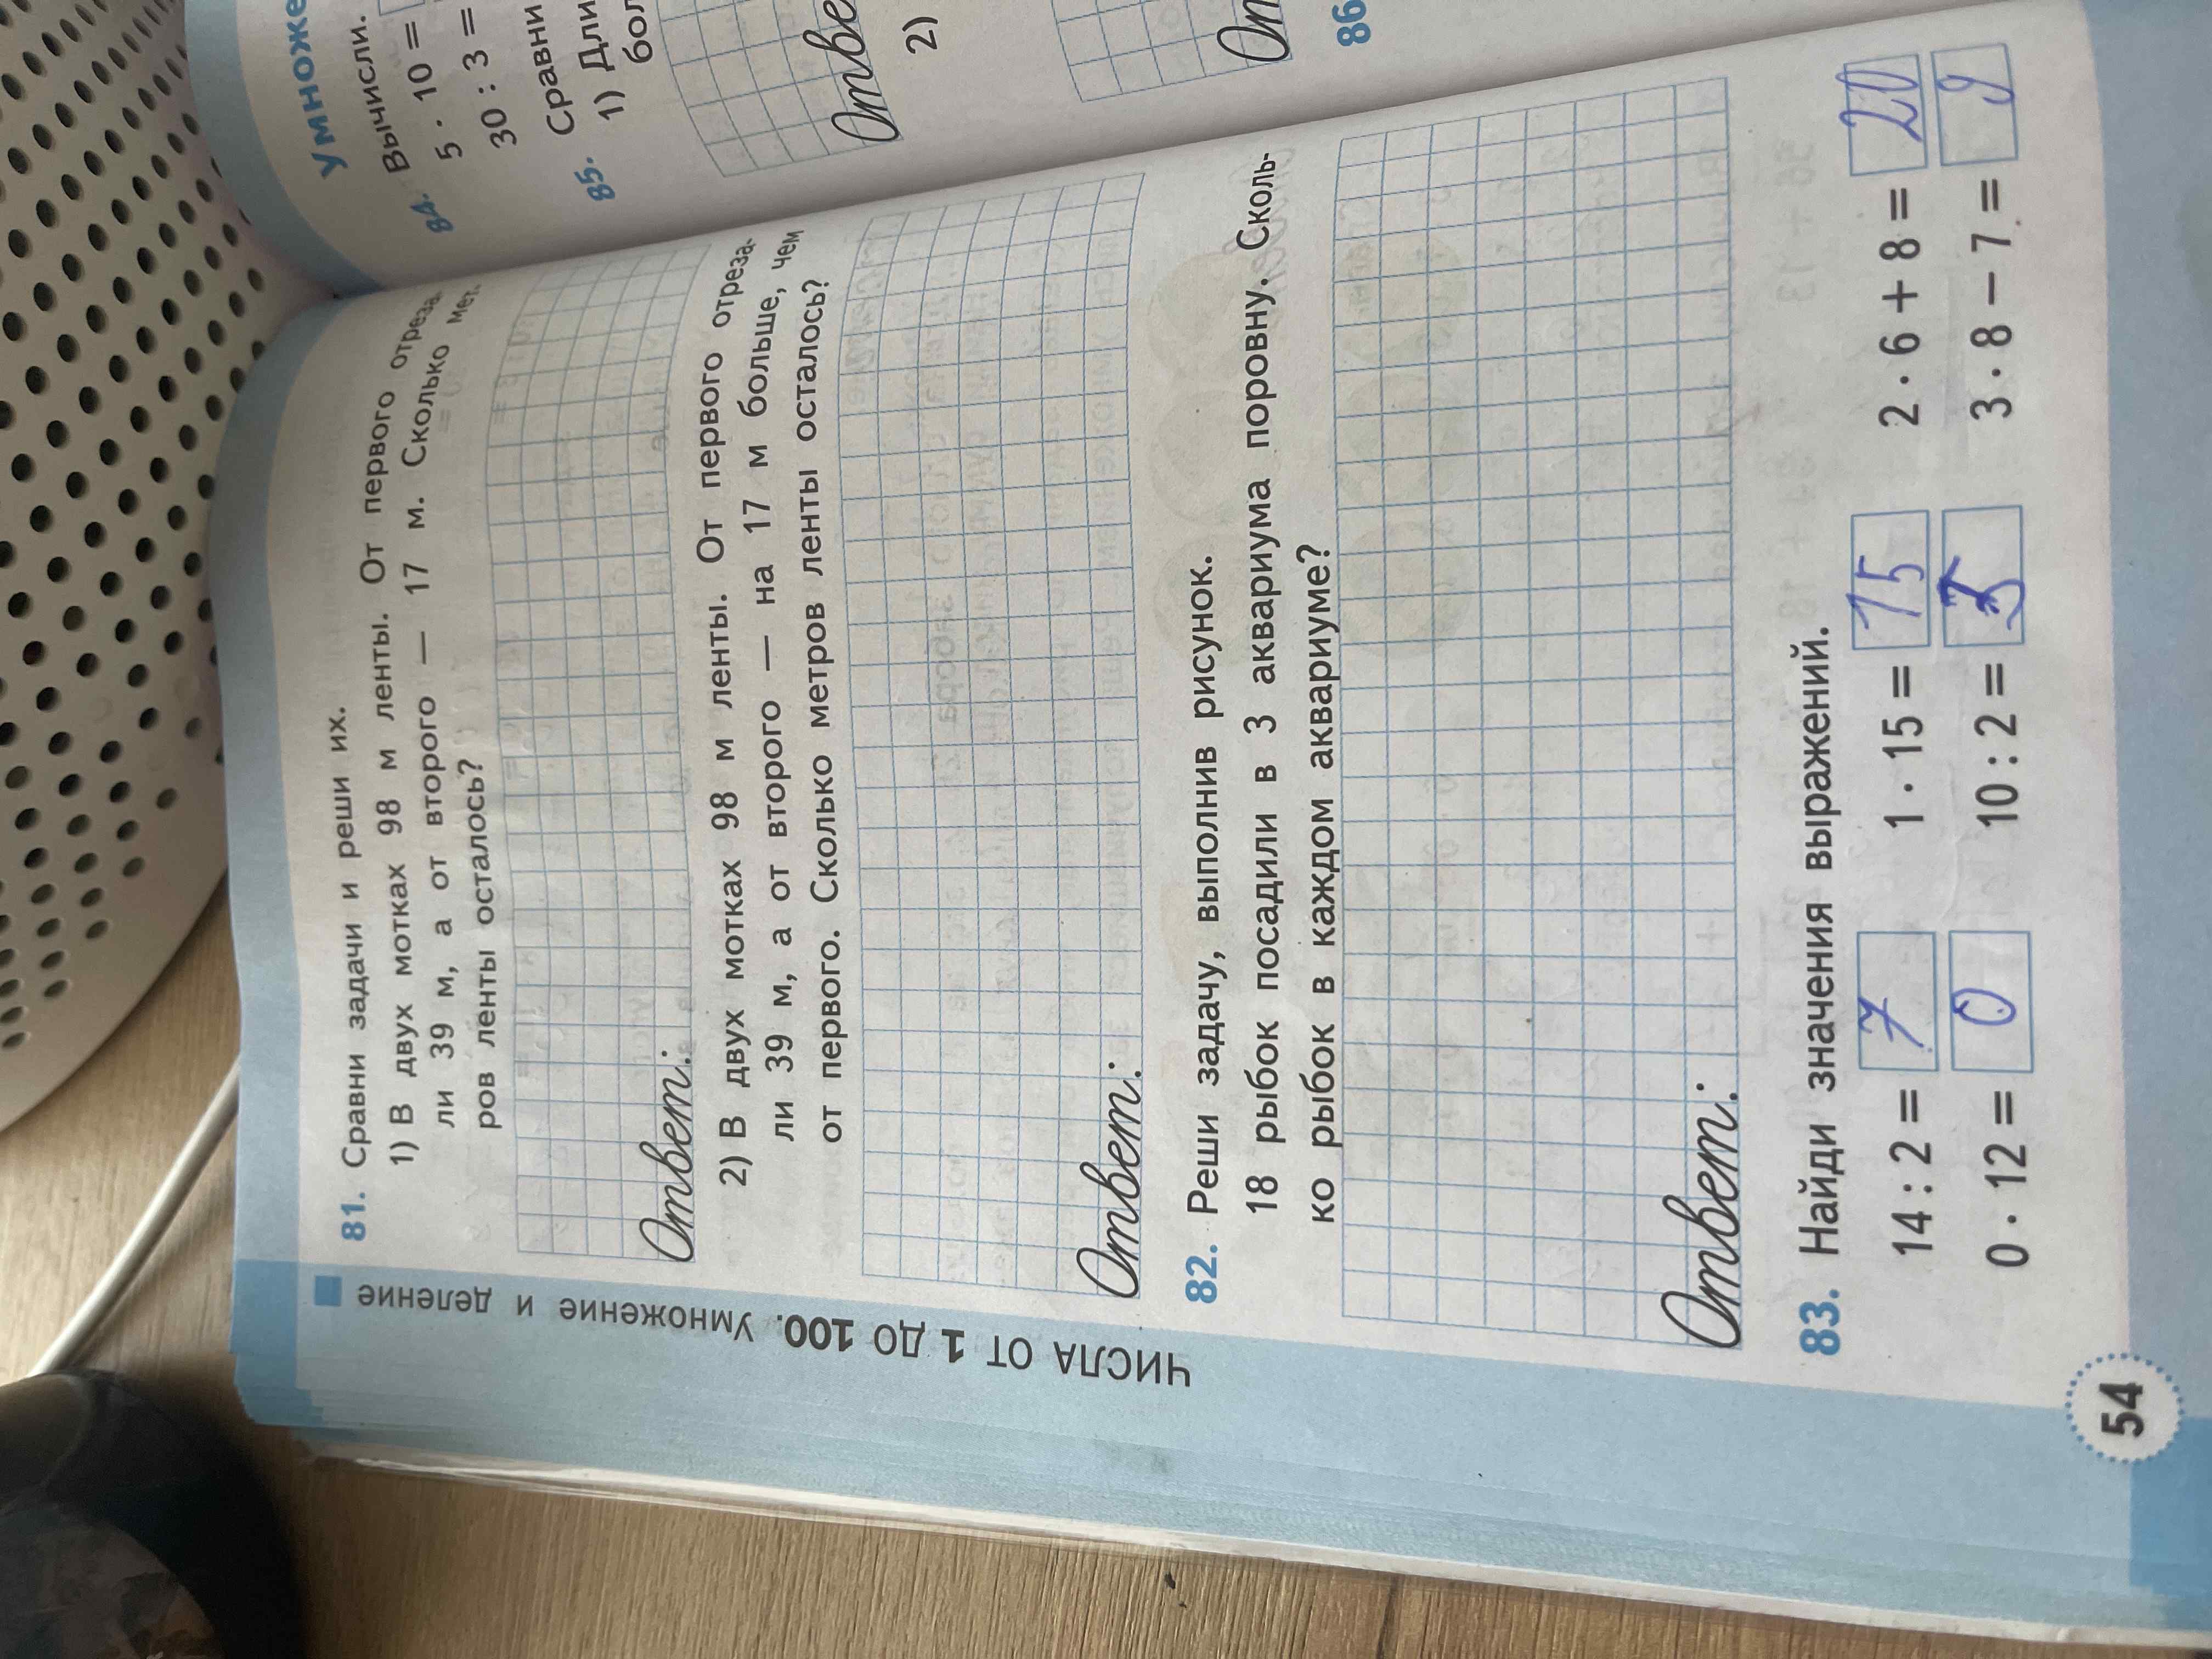 ЧИСЛА ОТ 1 ДО 100. Умножение и деление
81. Сравни задачи и реши их.
1) В двух мотках 98 м ленты. От первого отреза-
ли 39 м, а от второго — 17 м. Сколько мет-
ров ленты осталось?
Ответ:
2) В двух мотках 98 м ленты. От первого отреза-
ли 39 м, а от второго — на 17 м больше, чем
от первого. Сколько метров ленты осталось?
Ответ:
82. Реши задачу, выполнив рисунок.
18 рыбок посадили в 3 аквариума поровну. Сколь-
ко рыбок в каждом аквариуме?
Ответ:
83. Найди значения выражений.
14 : 2 = 7 1 · 15 = 15 2 · 6 + 8 = 20
0 · 12 = 0 10 : 2 = 5 3 · 8 − 7 =
54
Умноже
84. Вычисли.
5 · 10 =
30 : 3 =
85. Сравни
1) Дли
бол
Отве
2)
От
86